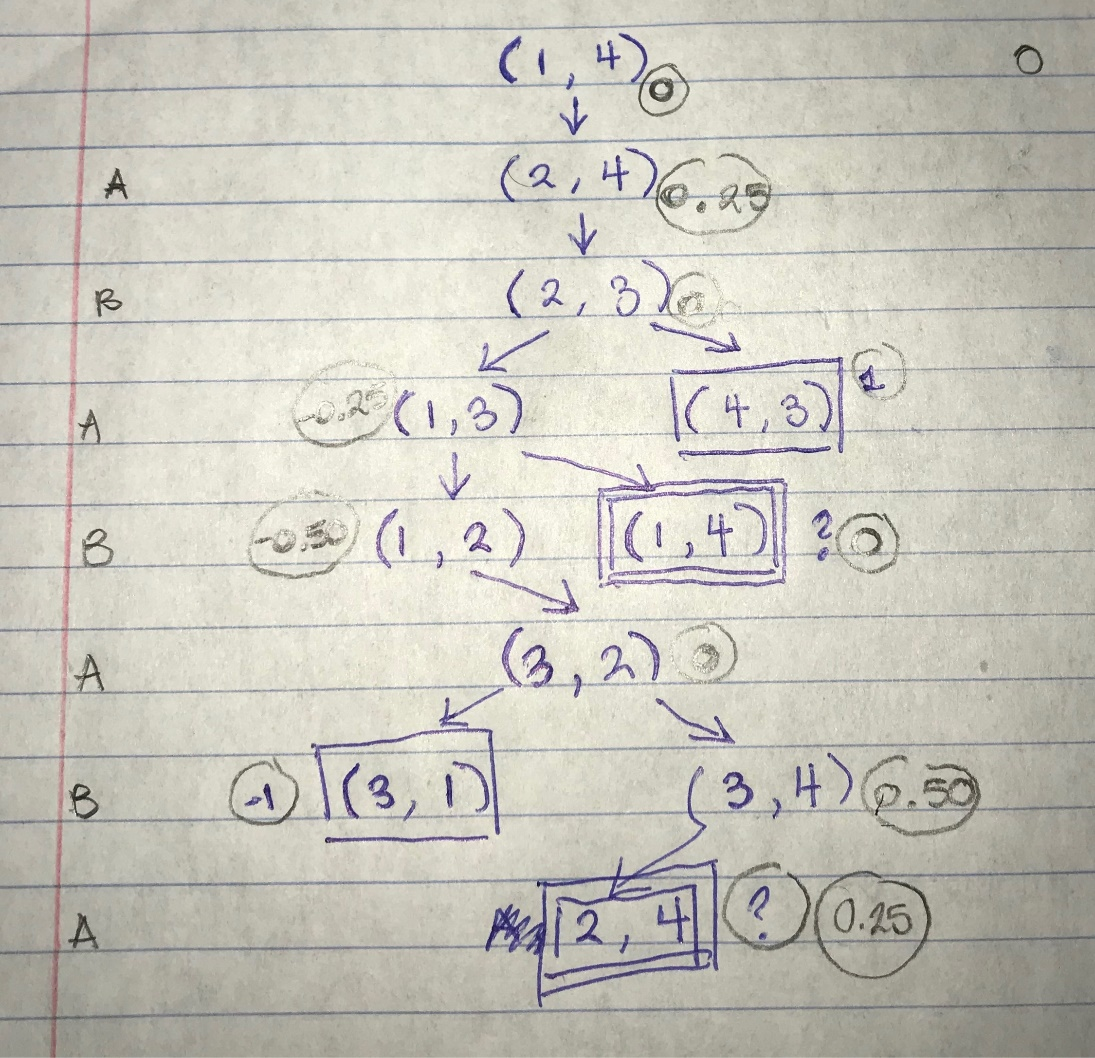 (1, 4) 0 0
↓
A (2, 4) 0.25
↓
B (2, 3) 0
A -0.25 (1,3) (4,3) 1
B -0.50 (1, 2) (1,4) ? 0
A (3, 2) 0
B -1 (3, 1) (3,4) 0.50
A 2, 4 ? 0.25